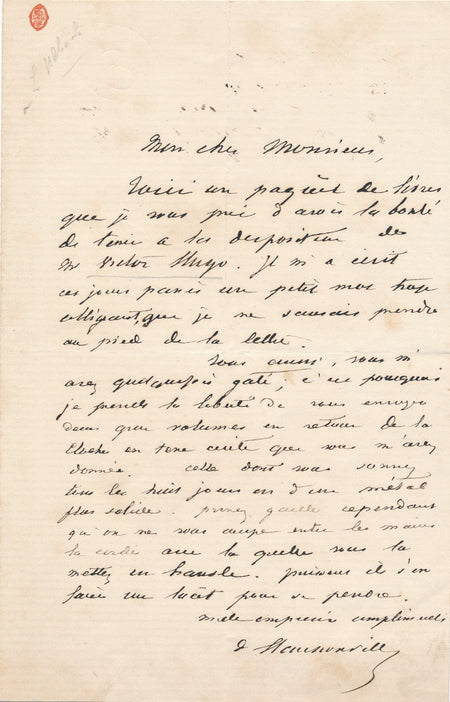 L Ulbach
Mon cher Monsieur,
Voici un paquet de livres
que je vous prie d'avoir la bonté
de tenir à la disposition de
Mr Victor Hugo. Il m'a écrit
ces jours passés un petit mot trop
obligeant, que je ne saurais prendre
au pied de la lettre.
Vous aussi, vous m'
avez quelquefois gâté, c'est pourquoi
je prends la liberté de vous envoyer
deux gros volumes en retour de la
Cloche en terre cuite que vous m'avez
donnée. celle dont vous sonnez
tous les huit jours est d'un métal
plus solide. prenez garde cependant
qu'on ne vous coupe entre les mains
la corde avec laquelle vous la
mettez en branle. puissent ils s'en
faire un lacet pour se pendre.
mille compliments
d'Haussonville